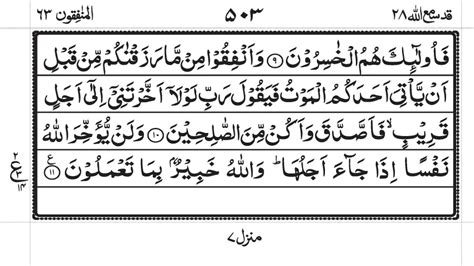 قد سمع الله ٢٨ ٥٠٣ المنٰفقون ٦٣
فَاُولٰٓئِكَ هُمُ الْخٰسِرُوْنَ ۹ وَاَنْفِقُوْا مِنْ مَّا رَزَقْنٰكُمْ مِّنْ قَبْلِ
اَنْ يَّاْتِيَ اَحَدَكُمُ الْمَوْتُ فَيَقُوْلَ رَبِّ لَوْلَاۤ اَخَّرْتَنِيْۤ اِلٰۤى اَجَلٍ
قَرِيْبٍ ۙ فَاَصَّدَّقَ وَاَكُنْ مِّنَ الصّٰلِحِيْنَ ۱۰ وَلَنْ يُّؤَخِّرَ اللّٰهُ
نَفْسًا اِذَا جَآءَ اَجَلُهَا ؕ وَاللّٰهُ خَبِيْرٌۢ بِمَا تَعْمَلُوْنَ ۱۱ ع
٢ ع ١٤
منزل ٧